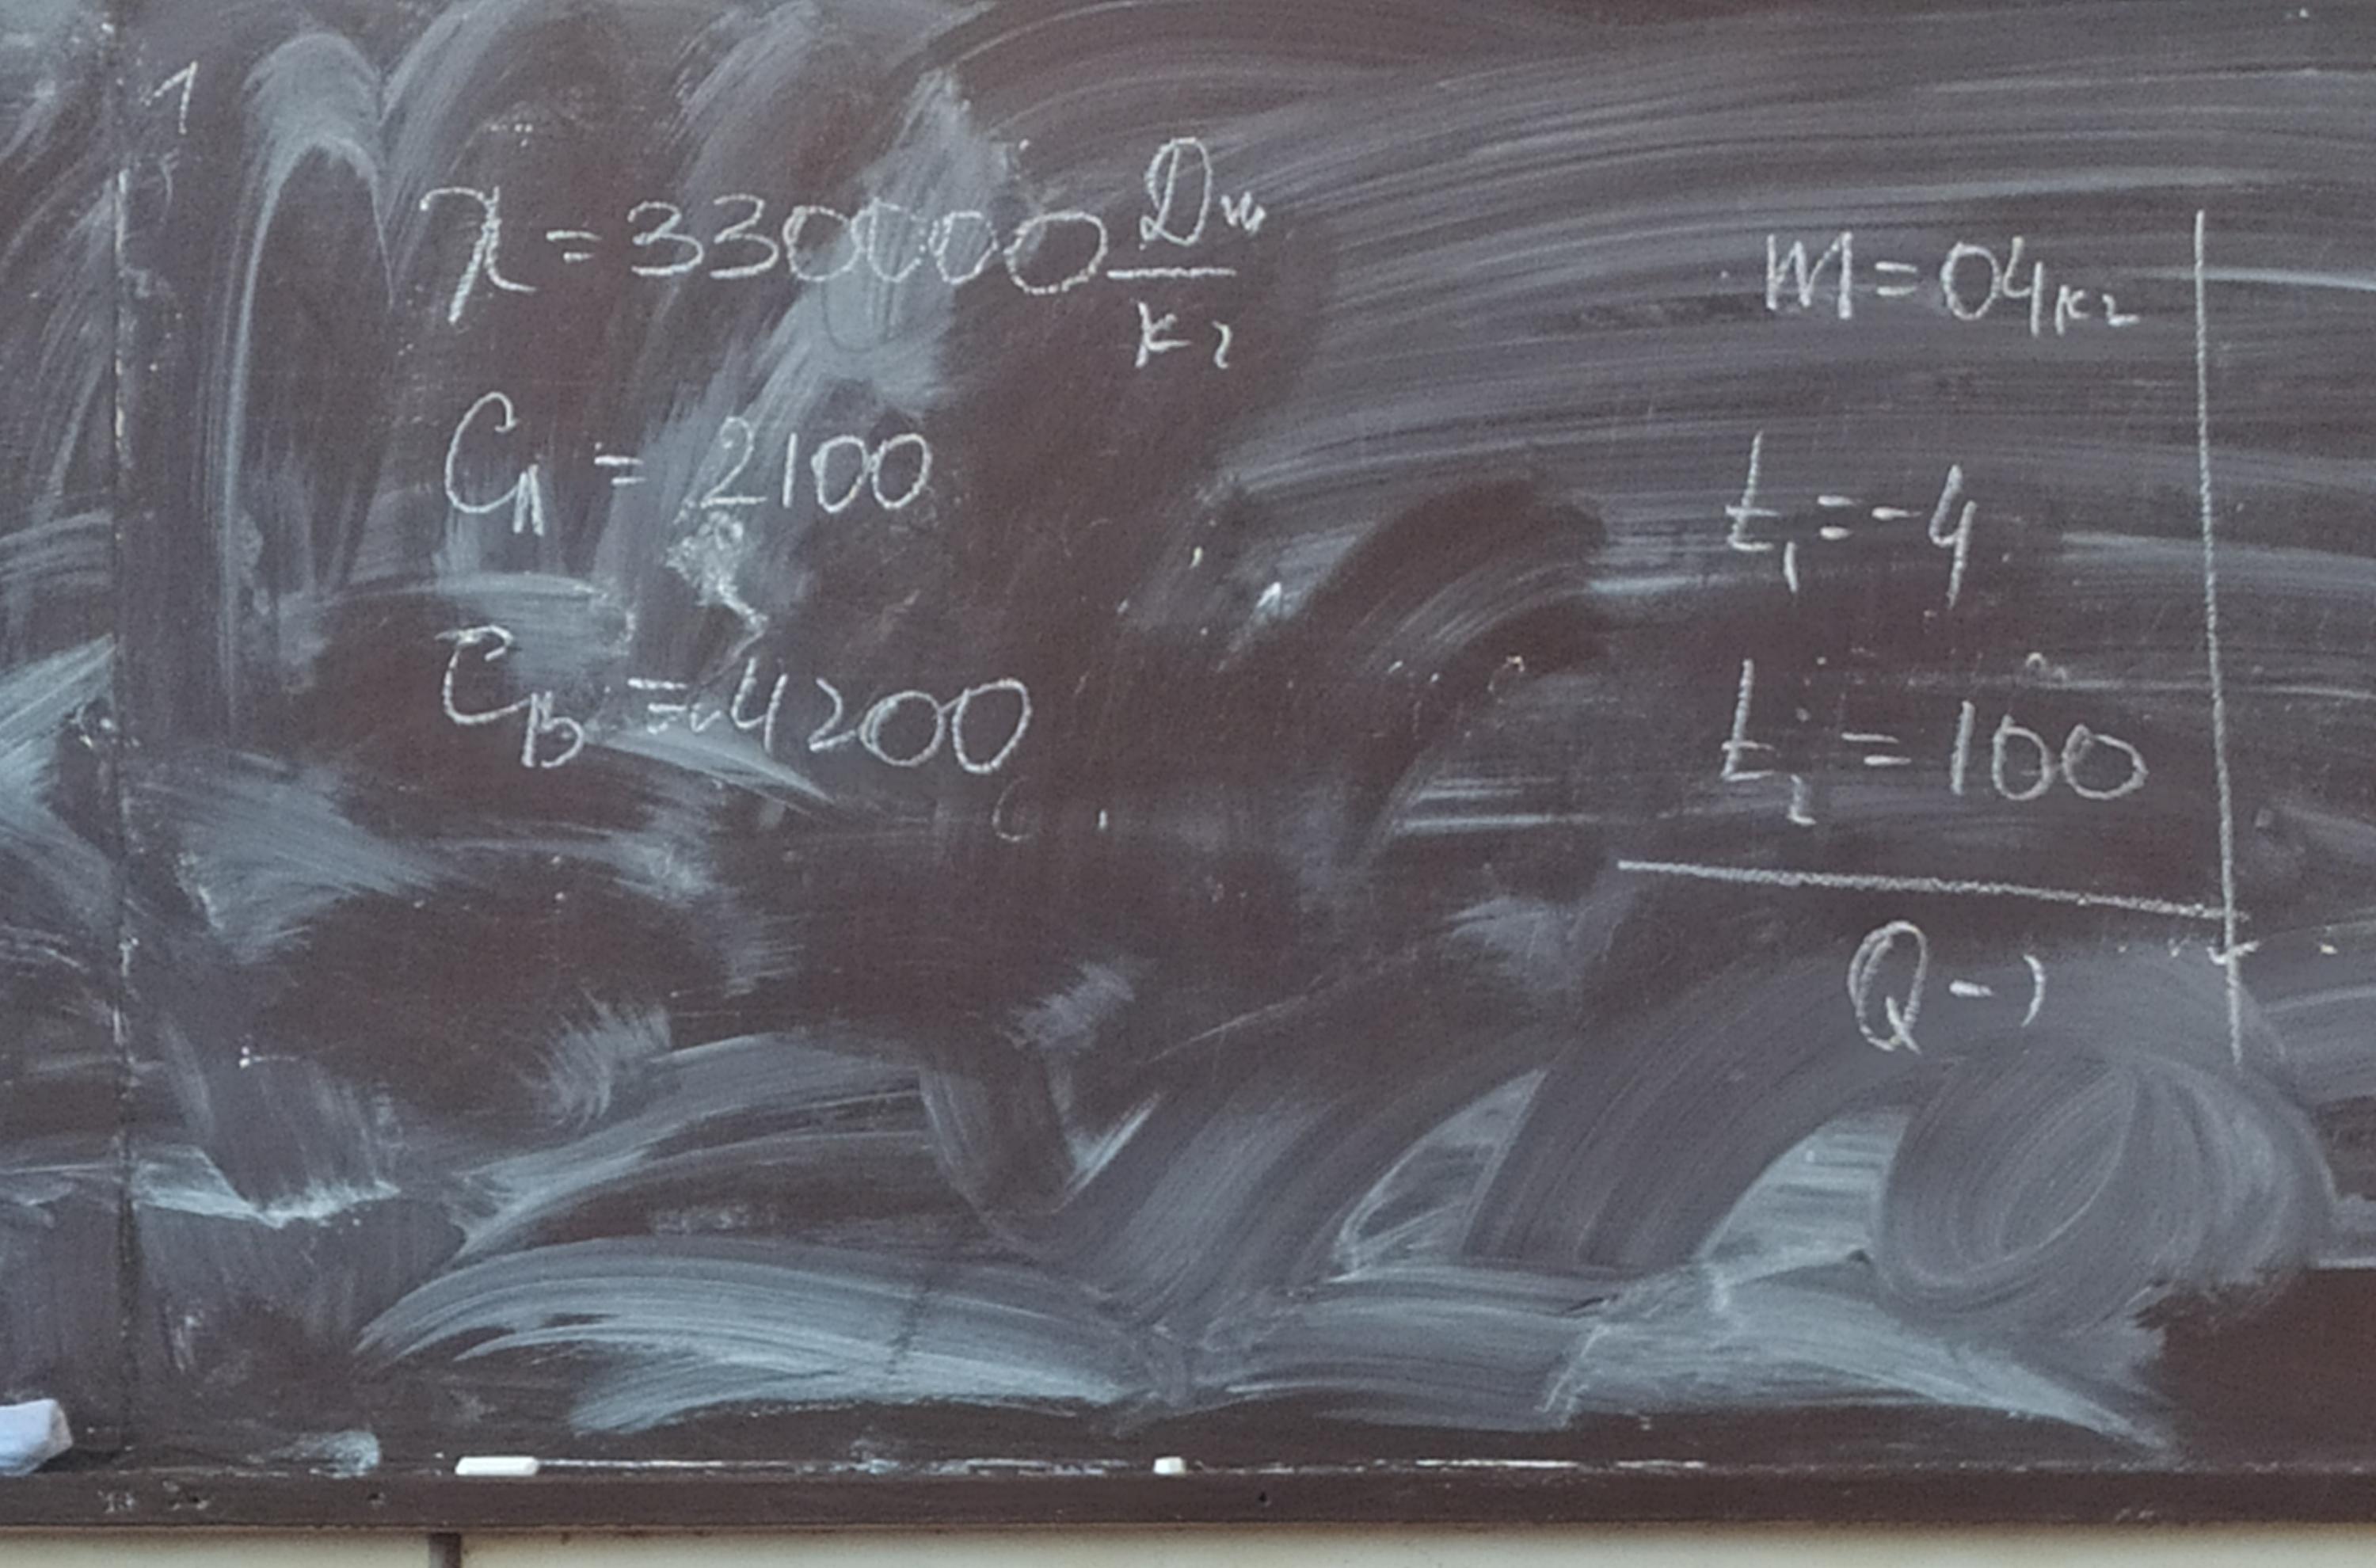 1
λ = 330000 Дж/кг
Cл = 2100
Cв = 4200
m = 04кг
t₁ = -4
t₂ = 100
Q - ?